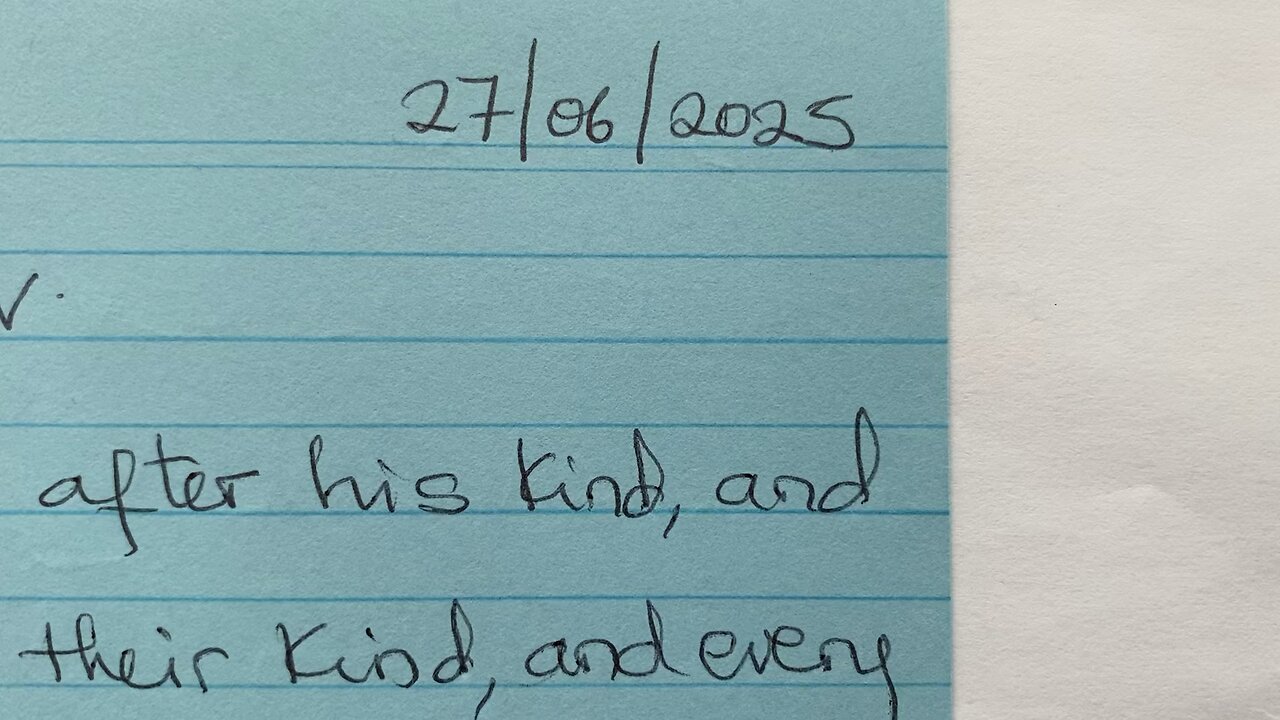 27/06/2025
v.
after his kind, and
their kind, and every